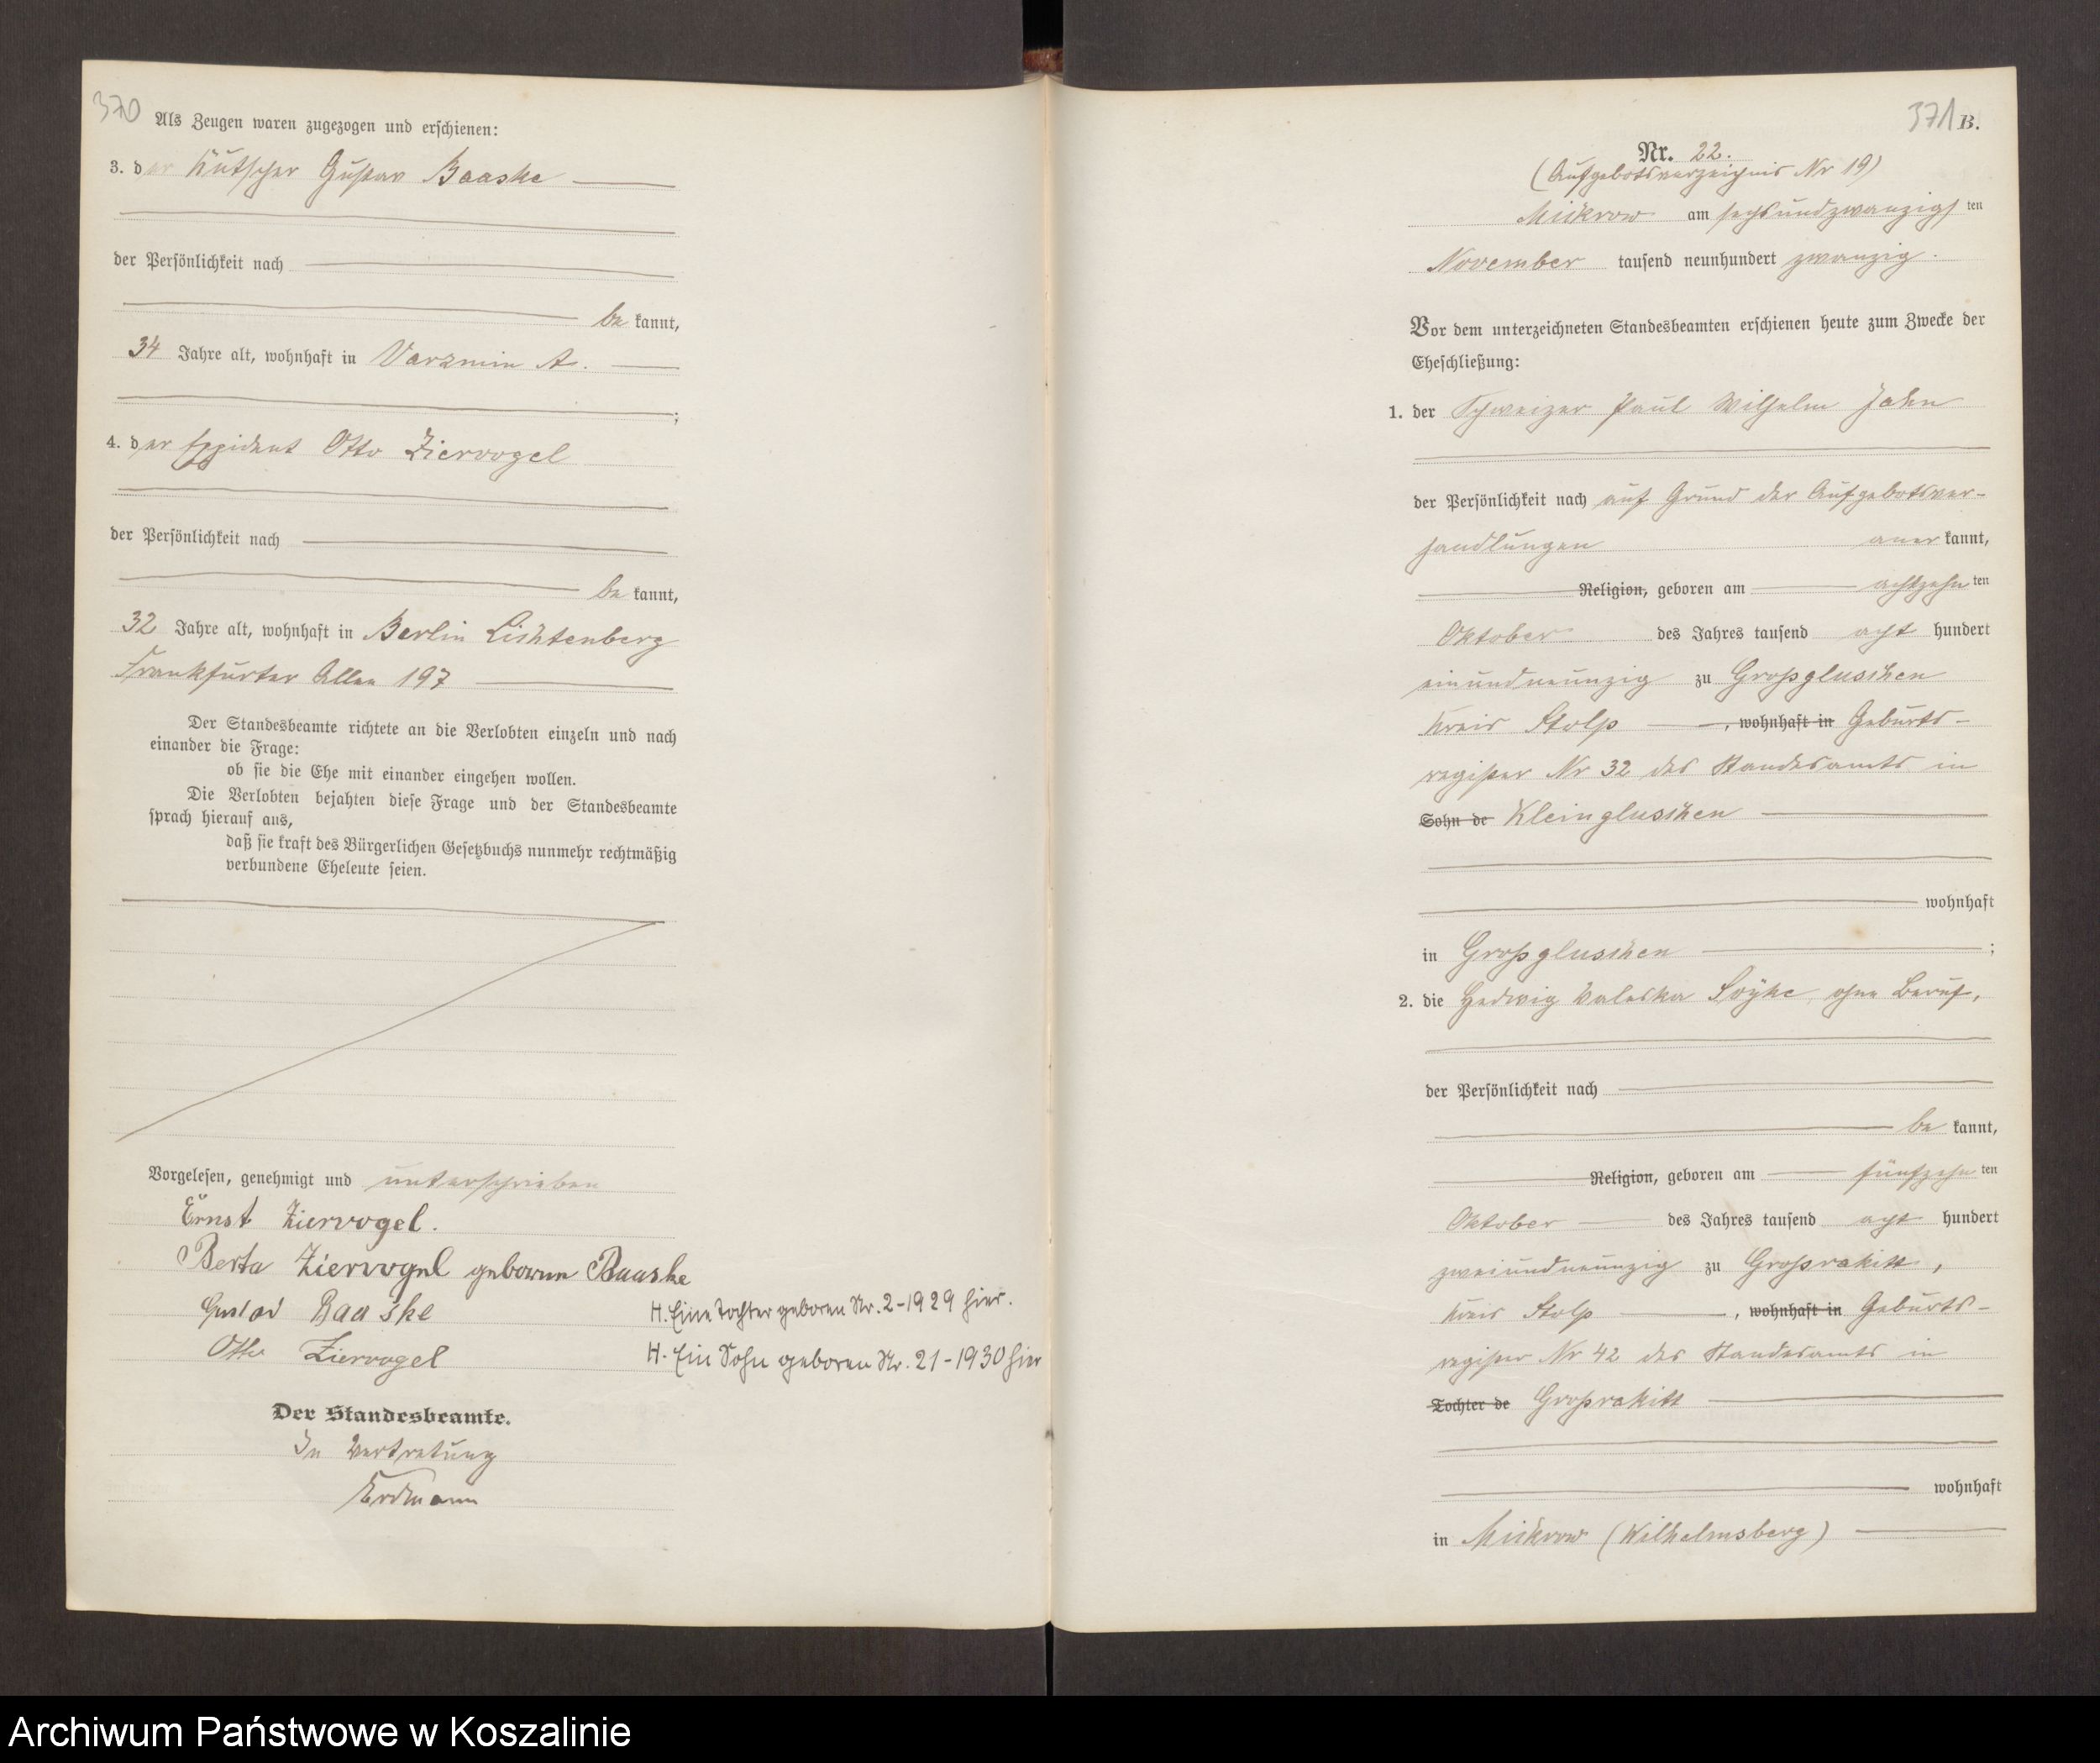 370
Als Zeugen waren zugezogen und erschienen:
3. der Kutscher Gustav Baaske
der Persönlichkeit nach
be kannt,
34 Jahre alt, wohnhaft in Varzmin A.
;
4. der Otto Ziervogel
der Persönlichkeit nach
be kannt,
32 Jahre alt, wohnhaft in Berlin Lichtenberg
Frankfurter Allee 197
Der Standesbeamte richtete an die Verlobten einzeln und nach
einander die Frage:
ob sie die Ehe mit einander eingehen wollen.
Die Verlobten bejahten diese Frage und der Standesbeamte
sprach hierauf aus,
daß sie kraft des Bürgerlichen Gesetzbuchs nunmehr rechtmäßig
verbundene Eheleute seien.
Vorgelesen, genehmigt und unterschrieben
Ernst Ziervogel.
Berta Ziervogel geborene Baaske
Gustav Baaske
Otto Ziervogel
H. Eine Tochter geboren Nr. 2-1929 hier.
H. Ein Sohn geboren Nr. 21-1930 hier
Der Standesbeamte.
In Vertretung
Erdmann
371 B.
Nr. 22.
(Aufgebotsverzeichnis Nr 19)
Mickrow am sechsundzwanzigsten
November tausend neunhundert zwanzig.
Vor dem unterzeichneten Standesbeamten erschienen heute zum Zwecke der
Eheschließung:
1. der Schweizer Paul Wilhelm Jahn
der Persönlichkeit nach auf Grund der Aufgebotsver-
handlungen anerkannt,
Religion, geboren am achtzehnten
Oktober des Jahres tausend acht hundert
einundneunzig zu Großgluschen
Kreis Stolp, wohnhaft in Geburts-
register Nr 32 des Standesamts in
Sohn de Kleingluschen
wohnhaft
in Großgluschen ;
2. die Hedwig Valeska Soyke, ohne Beruf,
der Persönlichkeit nach
be kannt,
Religion, geboren am fünfzehnten
Oktober des Jahres tausend acht hundert
zweiundneunzig zu Großrakitt,
Kreis Stolp, wohnhaft in Geburts-
register Nr 42 des Standesamts in
Tochter de Großrakitt
wohnhaft
in Mickrow (Wilhelmsberg)
Archiwum Państwowe w Koszalinie